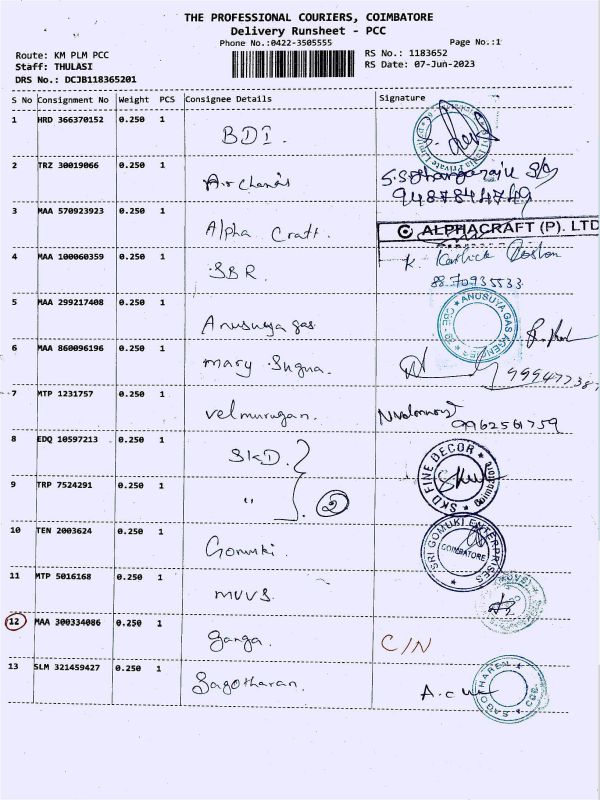 THE PROFESSIONAL COURIERS, COIMBATORE
Delivery Runsheet - PCC
Phone No.:0422-3505555 Page No.:1
Route: KM PLM PCC RS No.: 1183652
Staff: THULASI RS Date: 07-Jun-2023
DRS No.: DCJB118365201
S No Consignment No Weight PCS Consignee Details Signature
1 HRD 366370152 0.250 1 BDI.
2 TRZ 30019066 0.250 1
9487844749
3 MAA 570923923 0.250 1 Alpha Craft.
ALPHACRAFT (P). LTD
4 MAA 100060359 0.250 1 SBR. K. Karthick
8870935533
5 MAA 299217408 0.250 1 Anusuya gas
ANUSUYA GAS AGENCIES
6 MAA 860096196 0.250 1 mary Suguna.
7 MTP 1231757 0.250 1 velmurugan.
9962561759
8 EDQ 10597213 0.250 1 SKD.
SKD FINE DECOR
9 TRP 7524291 0.250 1 " 2
10 TEN 2003624 0.250 1 Gomuki.
SRI GOMUKI ENTERPRISES
COIMBATORE
11 MTP 5016168 0.250 1 MUVS.
12 MAA 300334086 0.250 1 Ganga. C/N
13 SLM 321459427 0.250 1 Sagotharan.